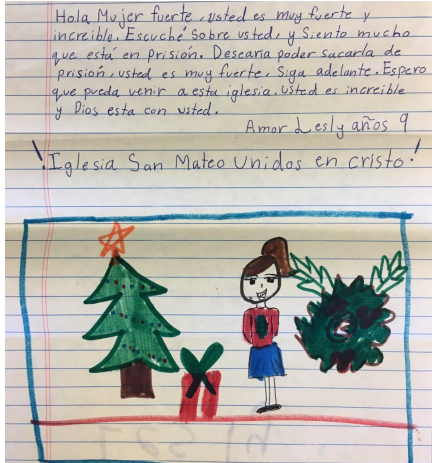 Hola Mujer fuerte, usted es muy fuerte y
increible. Escuché Sobre usted, y Siento mucho
que está en prisión. Desearia poder sacarla de
prisión, usted es muy fuerte. Siga adelante. Espero
que pueda venir a esta iglesia. usted es increible
y Dios esta con usted.
Amor Lesly años 9
¡Iglesia San Mateo Unidos en cristo!